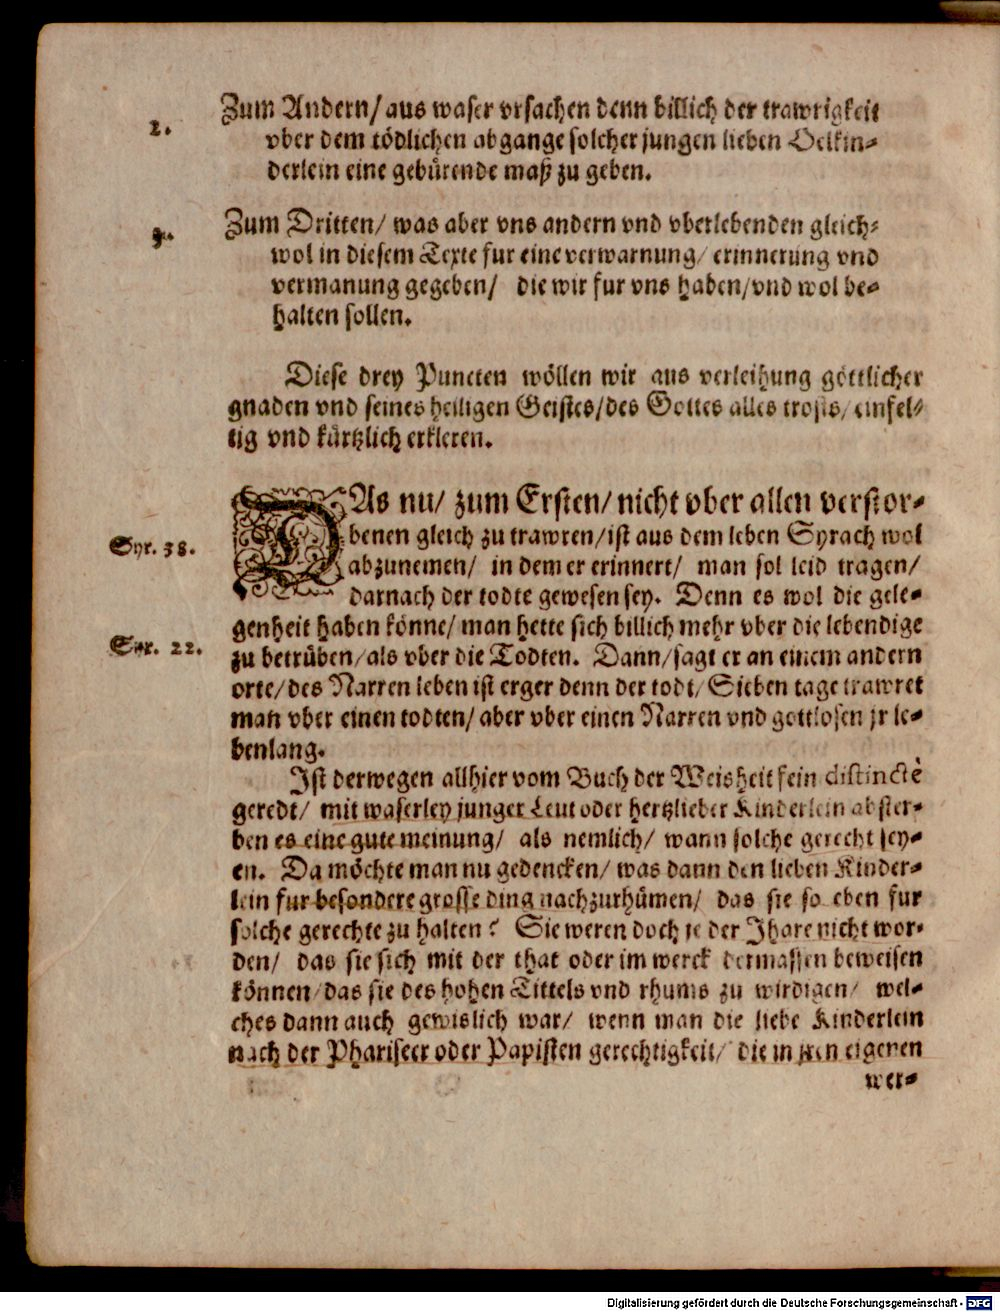 2.
Zum Andern/ aus waser vrsachen denn billich der trawrigkeit
vber dem tödlichen abgange solcher jungen lieben Oelkin-
derlein eine gebürende maß zu geben.
3.
Zum Dritten/ was aber vns andern vnd vberlebenden gleich-
wol in diesem Texte fur eine verwarnung/ erinnerung vnd
vermanung gegeben/ die wir fur vns haben/ vnd wol be-
halten sollen.
Diese drey Puncten wöllen wir aus verleihung göttlicher
gnaden vnd seines heiligen Geistes/ des Gottes alles trosts/ einfel-
tig vnd kürtzlich erkleren.
DAs nu/ zum Ersten/ nicht vber allen verstor-
Syr. 38.
benen gleich zu trawren/ ist aus dem leben Syrach wol
abzunemen/ in dem er erinnert/ man sol leid tragen/
darnach der todte gewesen sey. Denn es wol die gele-
genheit haben könne/ man hette sich billich mehr vber die lebendige
Syr. 22.
zu betrüben/ als vber die Todten. Dann/ sagt er an einem andern
orte/ des Narren leben ist erger denn der todt/ Sieben tage trawret
man vber einen todten/ aber vber einen Narren vnd gottlosen jr le-
benlang.
Ist derwegen allhier vom Buch der Weisheit fein distinctè
geredt/ mit waserley junger Leut oder hertzlieber Kinderlein abster-
ben es eine gute meinung/ als nemlich/ wann solche gerecht sey-
en. Da möchte man nu gedencken/ was dann den lieben Kinder-
lein fur besondere grosse ding nachzurhümen/ das sie so eben fur
solche gerechte zu halten? Sie weren doch je der Jhare nicht wor-
den/ das sie sich mit der that oder im werck dermassen beweisen
können/ das sie des hohen Tittels vnd rhums zu wirdigen/ wel-
ches dann auch gewislich war/ wenn man die liebe Kinderlein
nach der Phariseer oder Papisten gerechtigkeit/ die in jren eigenen
wer-
Digitalisierung gefördert durch die Deutsche Forschungsgemeinschaft - DFG